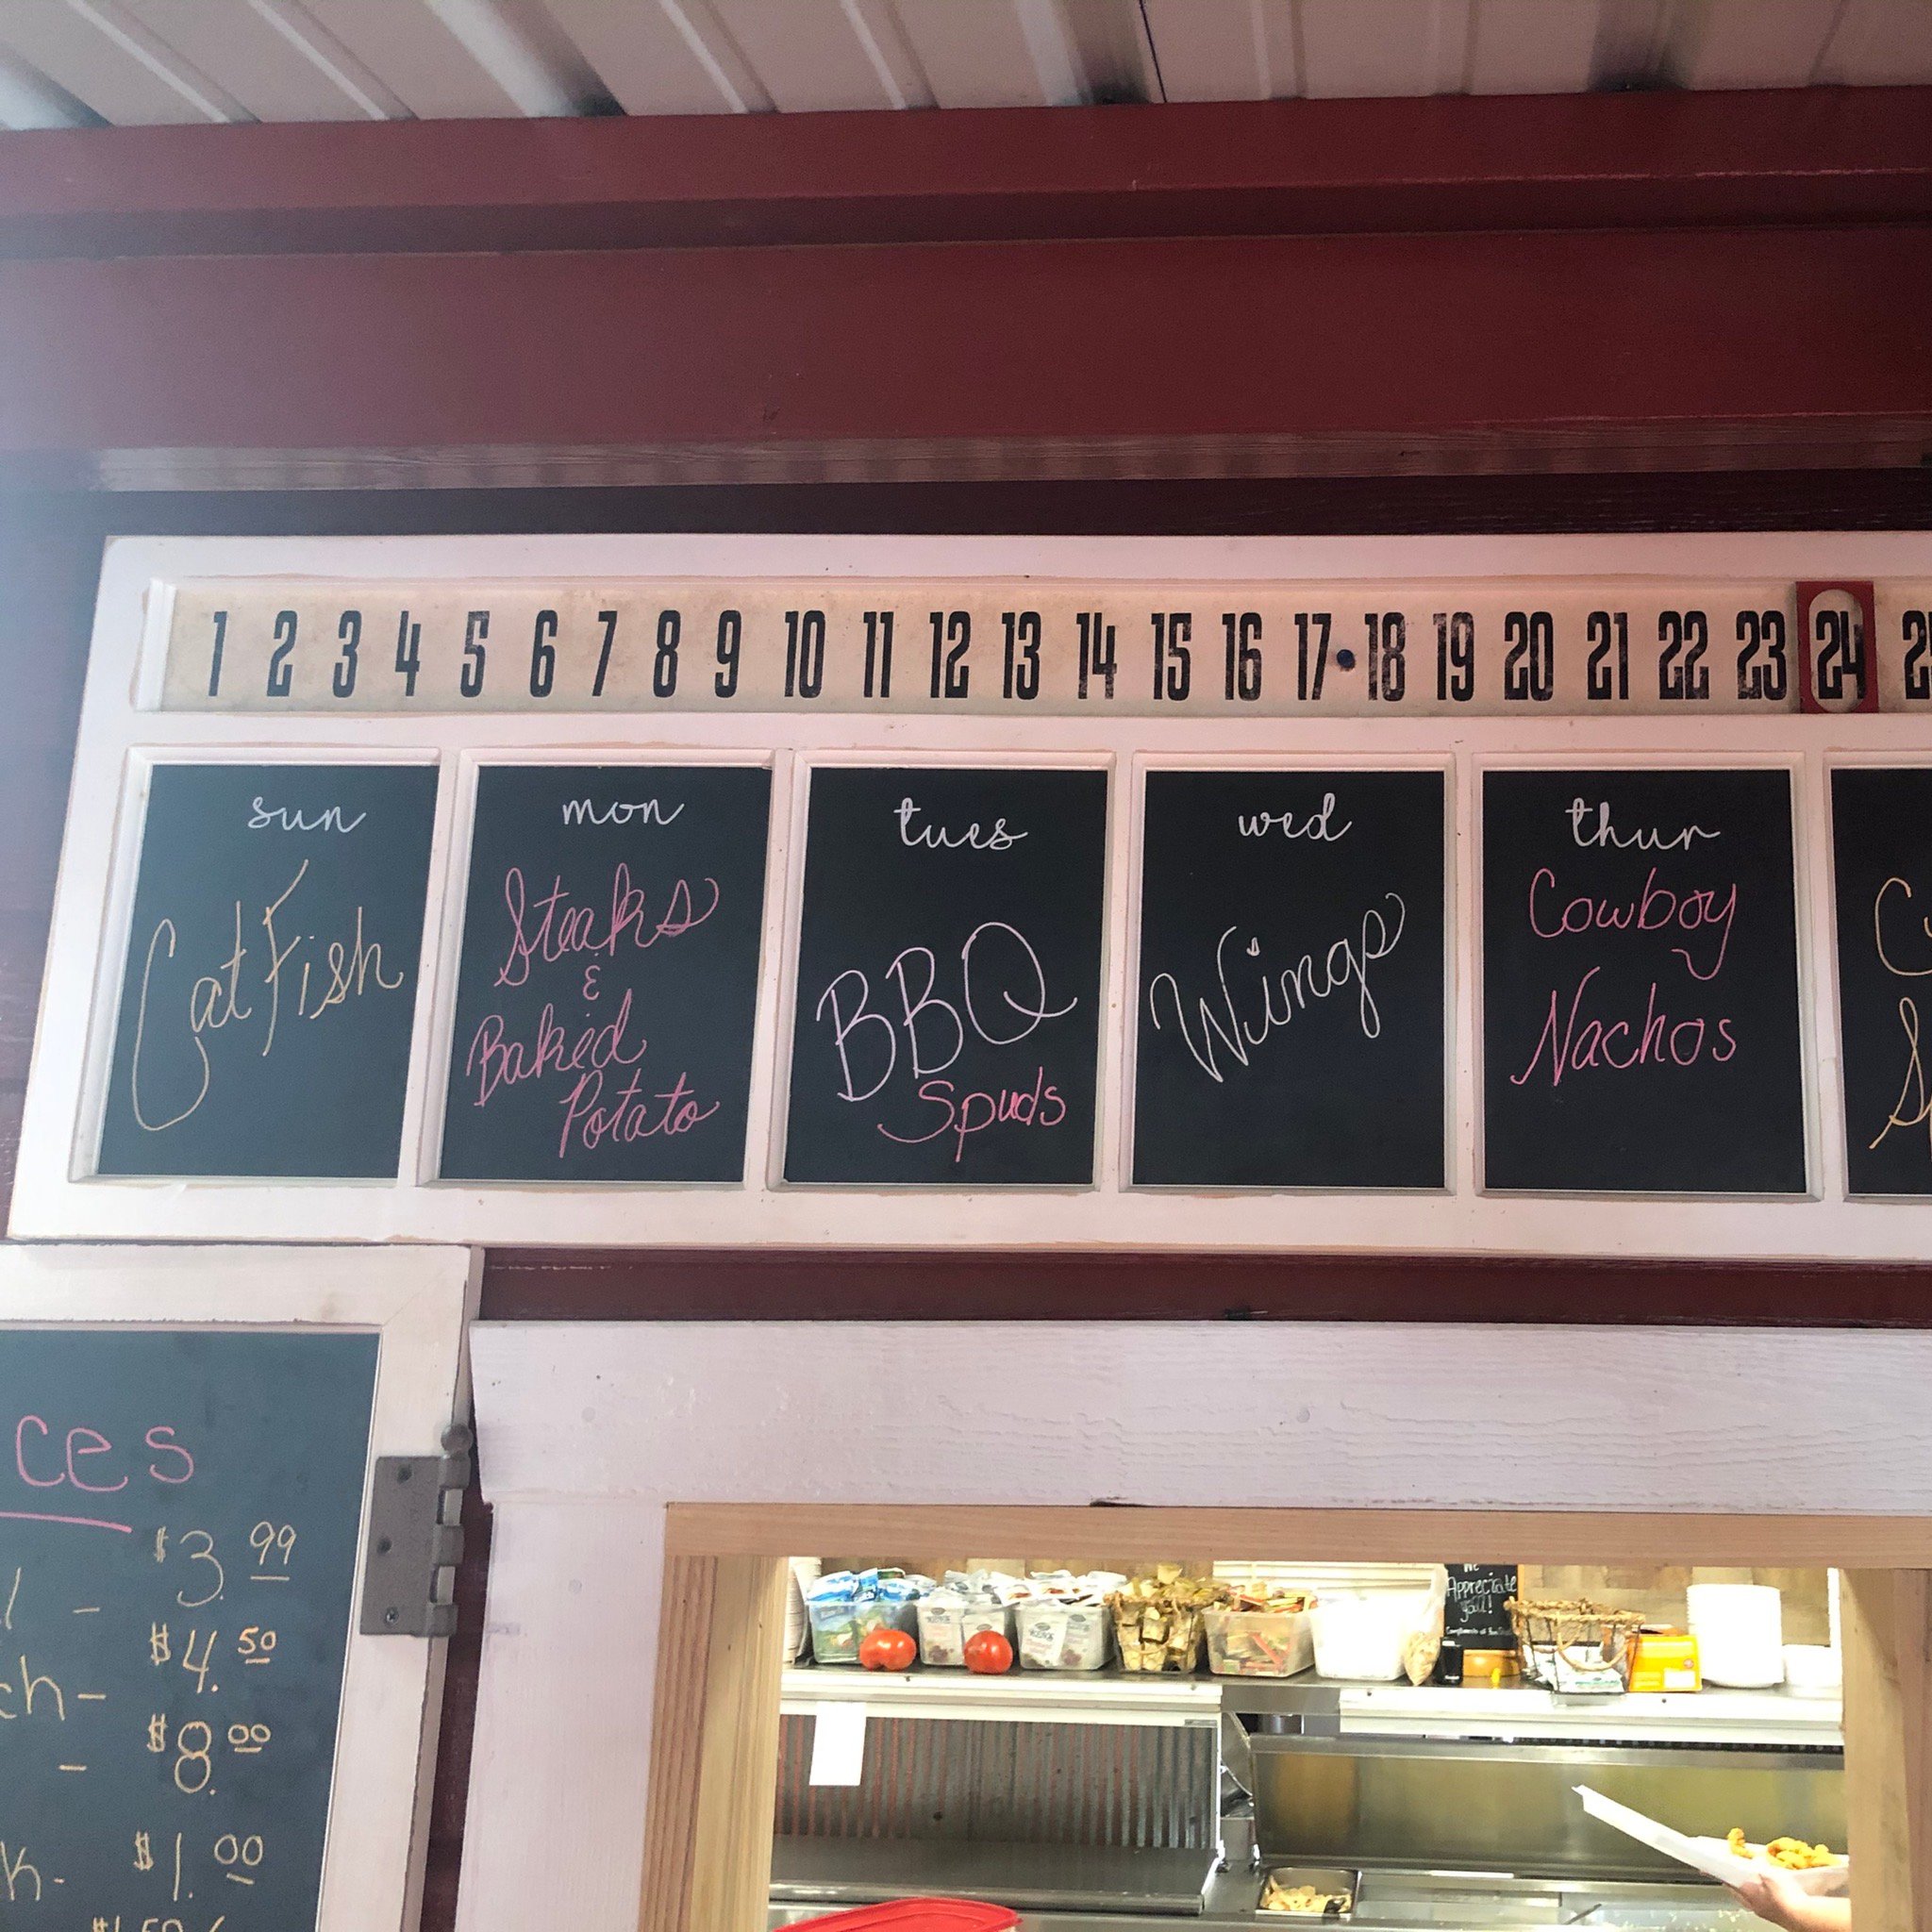 1 2 3 4 5 6 7 8 9 10 11 12 13 14 15 16 17 18 19 20 21 22 23 24
sun
CatFish
mon
Steaks
&
Baked
Potato
tues
BBQ
Spuds
wed
Wings
thur
Cowboy
Nachos
ces
$3.99
$4.50
ch-
$8.00
-
k-
$1.00
We
Appreciate
you!